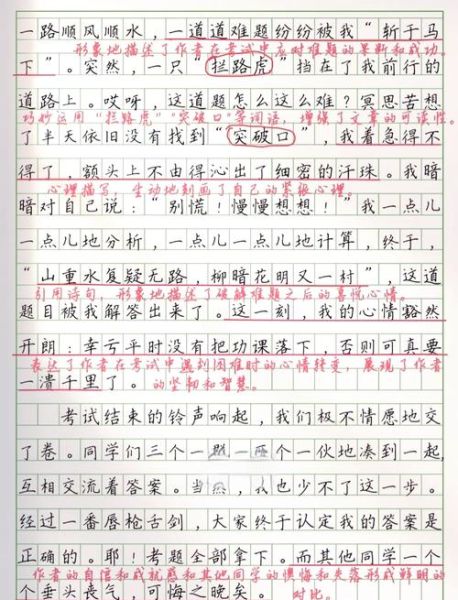 一路顺风顺水，一道道难题纷纷被我“斩于马
形象地描述了作者在考试中应对难题的果断和成功。
下”。突然，一只“拦路虎”挡在了我前行的
道路上。哎呀，这道题怎么这么难？冥思苦想
巧妙运用“拦路虎”“突破口”等词语，增强了文章的可读性。
了半天依旧没有找到“突破口”，我着急得不
得了，额头上不由得沁出了细密的汗珠。我暗
心理描写，生动地刻画了自己的紧张心理。
暗对自己说：“别慌！慢慢想想！”我一点儿
一点儿地分析，一点儿一点儿地计算，终于，
“山重水复疑无路，柳暗花明又一村”，这道
引用诗句，形象地描述了破解难题之后的喜悦心情。
题目被我解答出来了。这一刻，我的心情豁然
开朗：幸亏平时没有把功课落下，否则可真要
表达了作者在考试中遇到困难时的心情转变，展现了作者
一溃千里了。
的坚韧和智慧。
考试结束的铃声响起，我们极不情愿地交
了卷。同学们三个一群一两个一伙地凑到一起，
互相交流着答案。当然，我也少不了这一步。
经过一番唇枪舌剑，大家终于认定我的答案是
正确的。耶！考题全部拿下。而其他同学一个
作者的自信和成就感和其他同学的懊悔和失落形成鲜明的
个垂头丧气，可悔之晚矣。
对比。